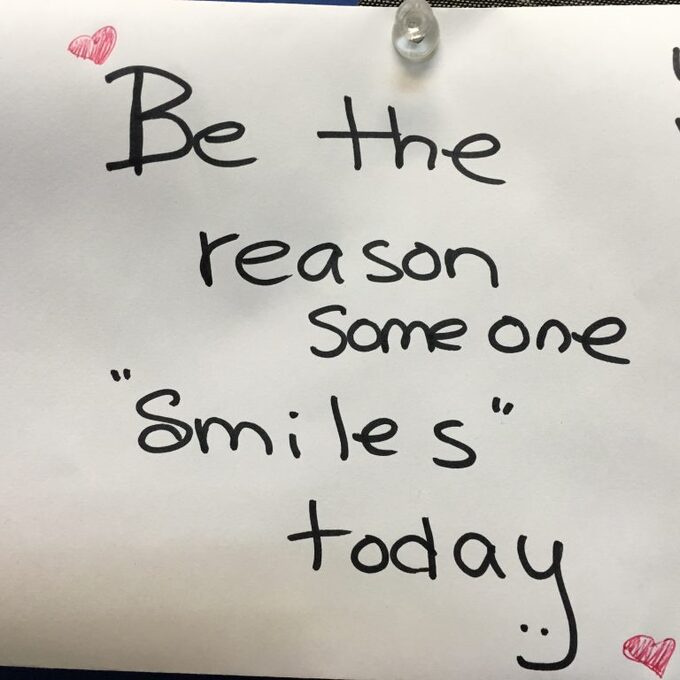 Be the
reason
someone
"Smiles"
today